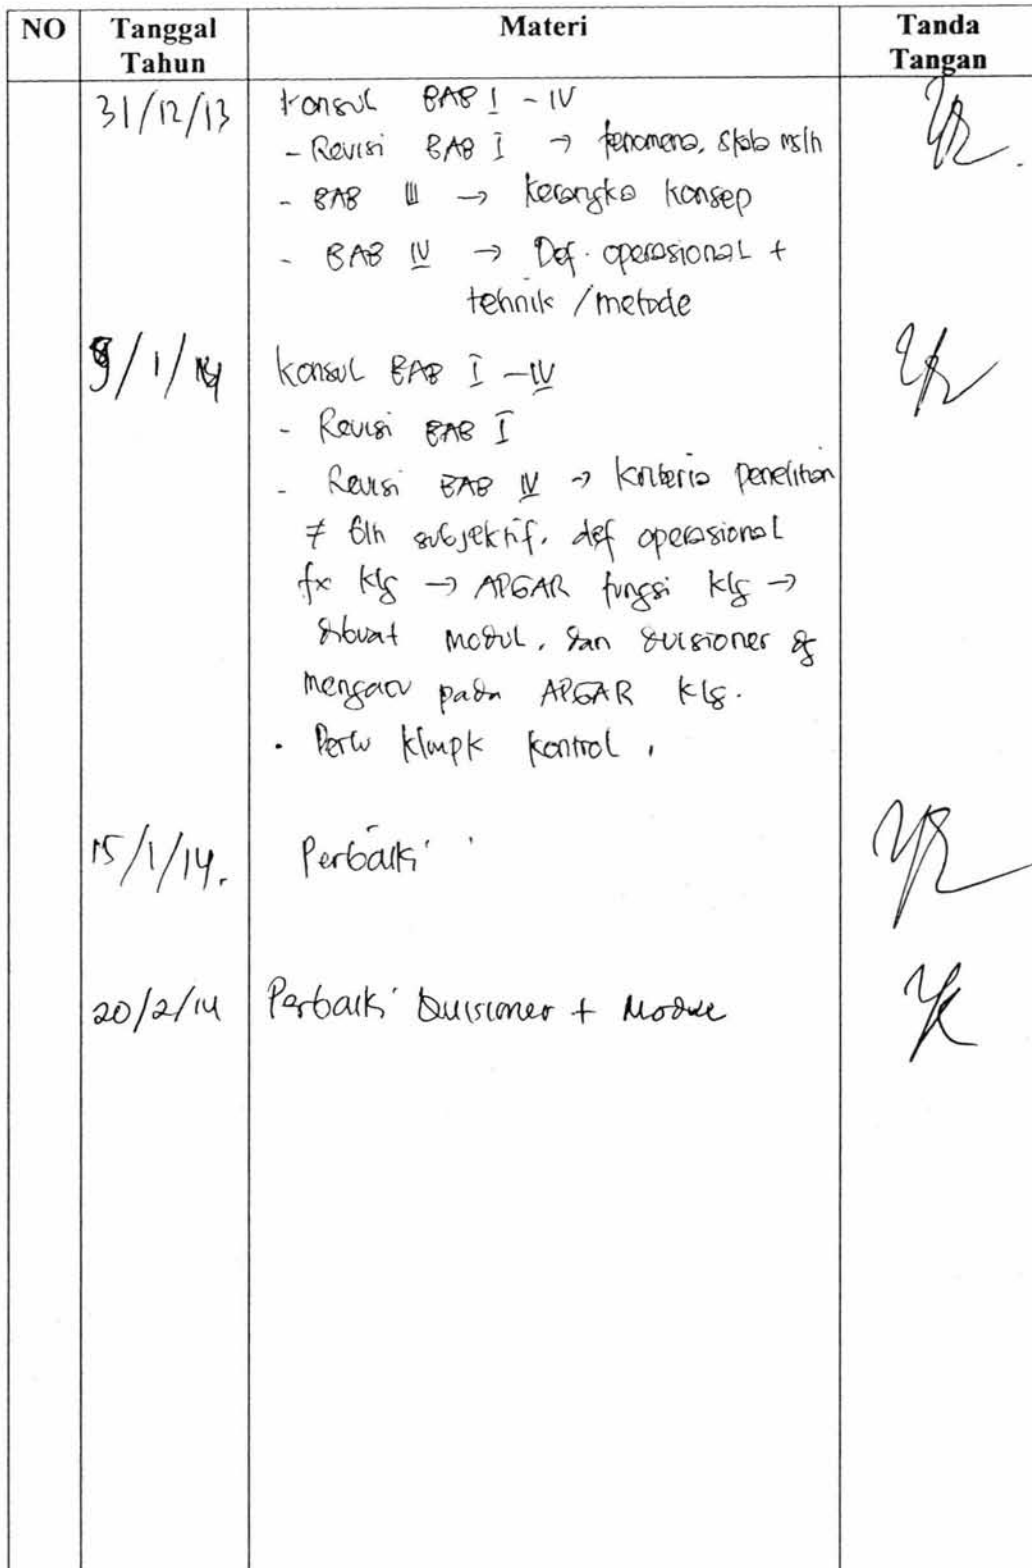 NO Tanggal Tahun Materi Tanda Tangan
31/12/13 konsul BAB I - IV
- Revisi BAB I → fenomena, mslh
- BAB III → kerangka konsep
- BAB IV → Def. operasional +
tehnik / metode
9/1/14 konsul BAB I - IV
- Revisi BAB I
- Revisi BAB IV → kriteria penelitian
≠ blh subjektif. def operasional
fx klg → APGAR fungsi klg →
dibuat modul. dan quisioner
mengacu pada APGAR klg.
. Perlu klmpk kontrol.
15/1/14. Perbaiki
20/2/14 Perbaiki Quisioner + Module